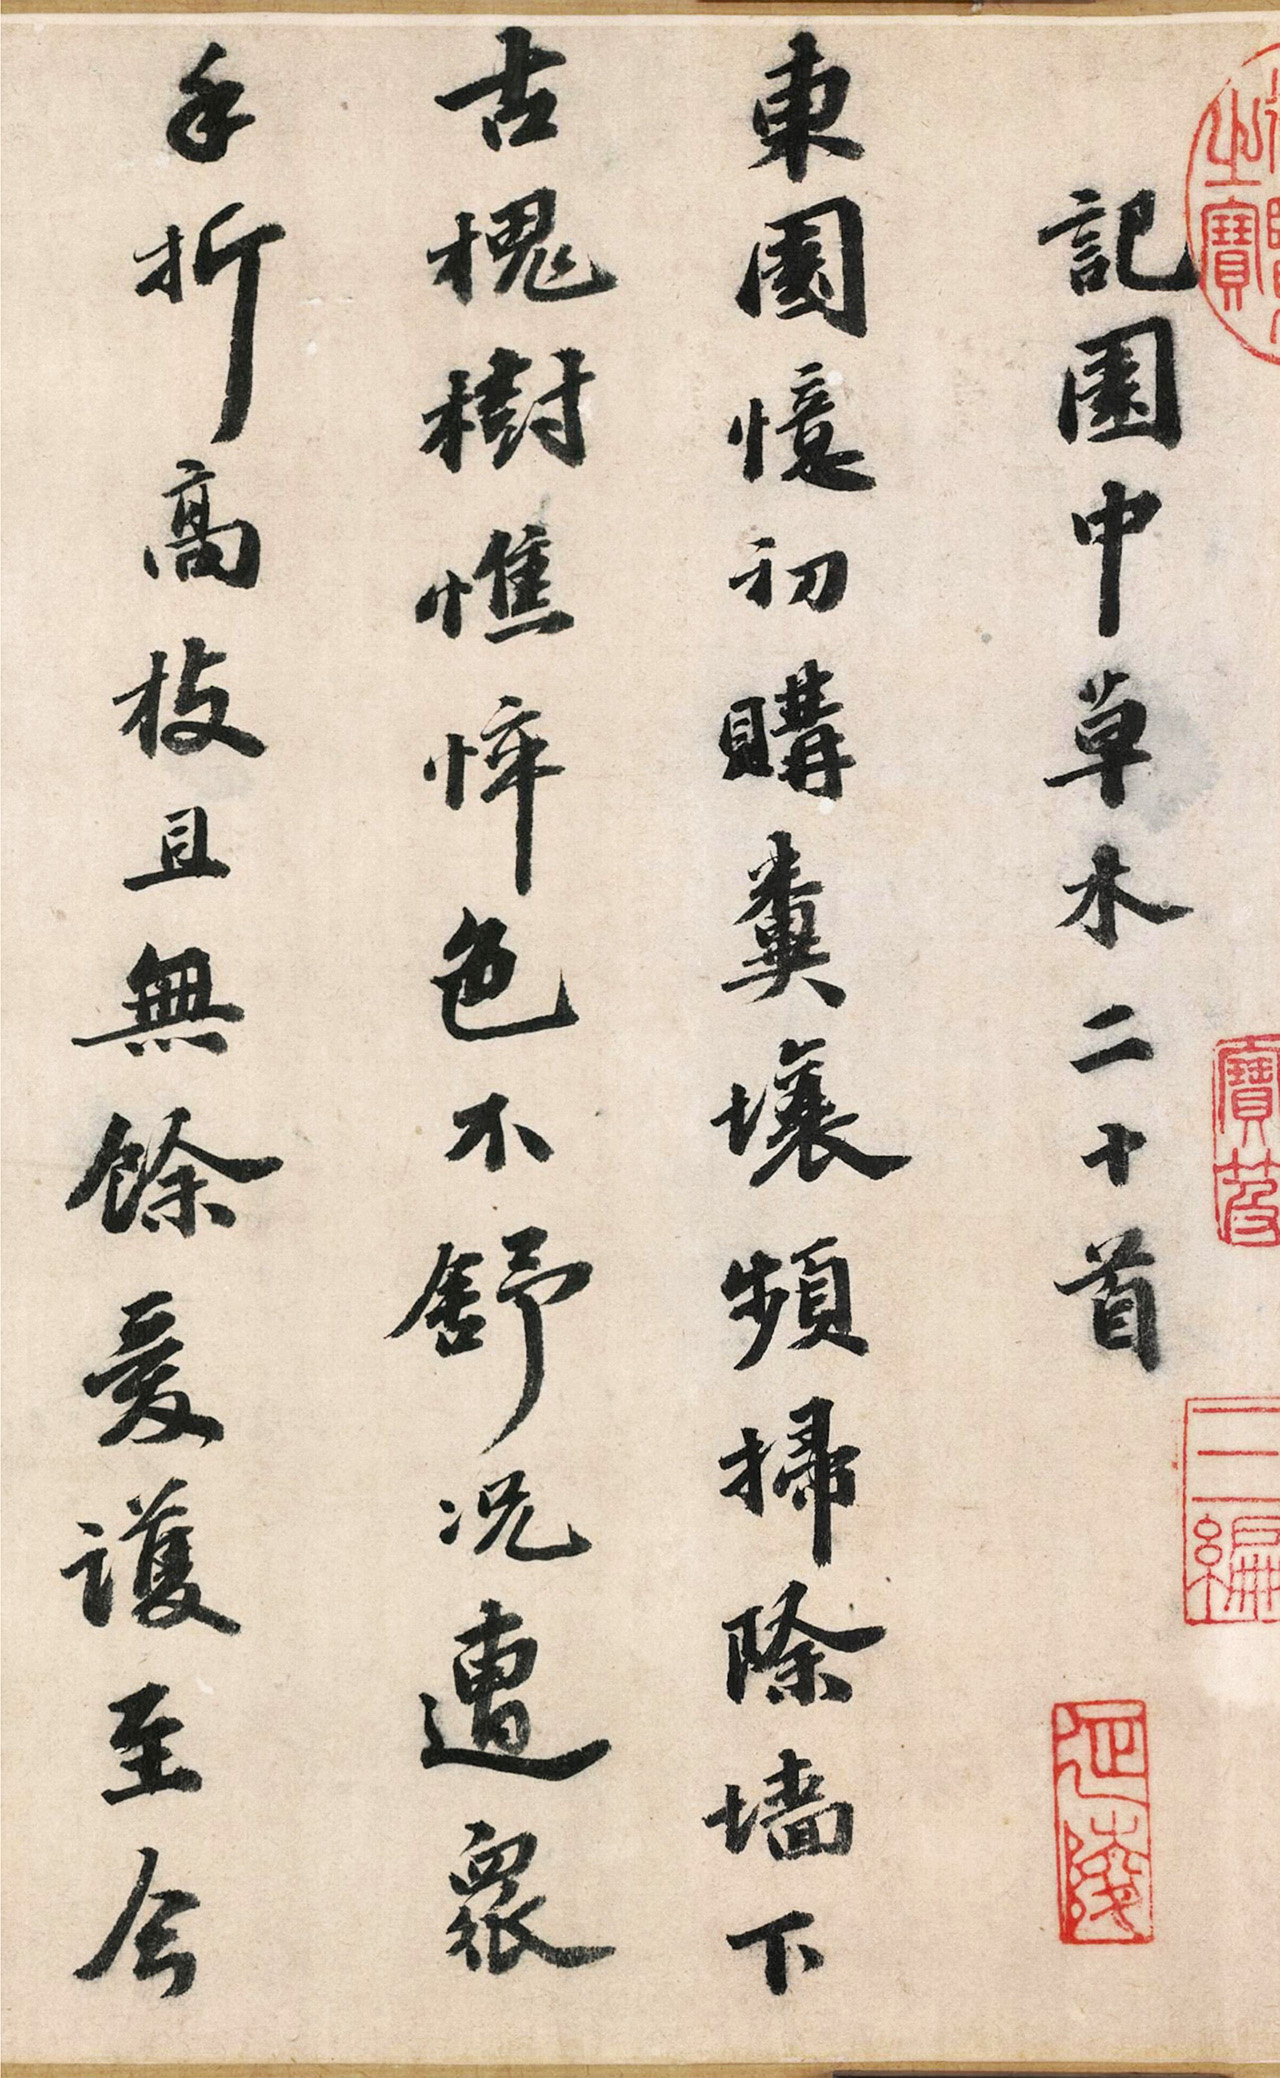 記園中草木二十首
東園憶初購糞壤頻掃除墻下
古槐樹憔悴色不舒況遭衆
手折高枝且無餘愛護至今